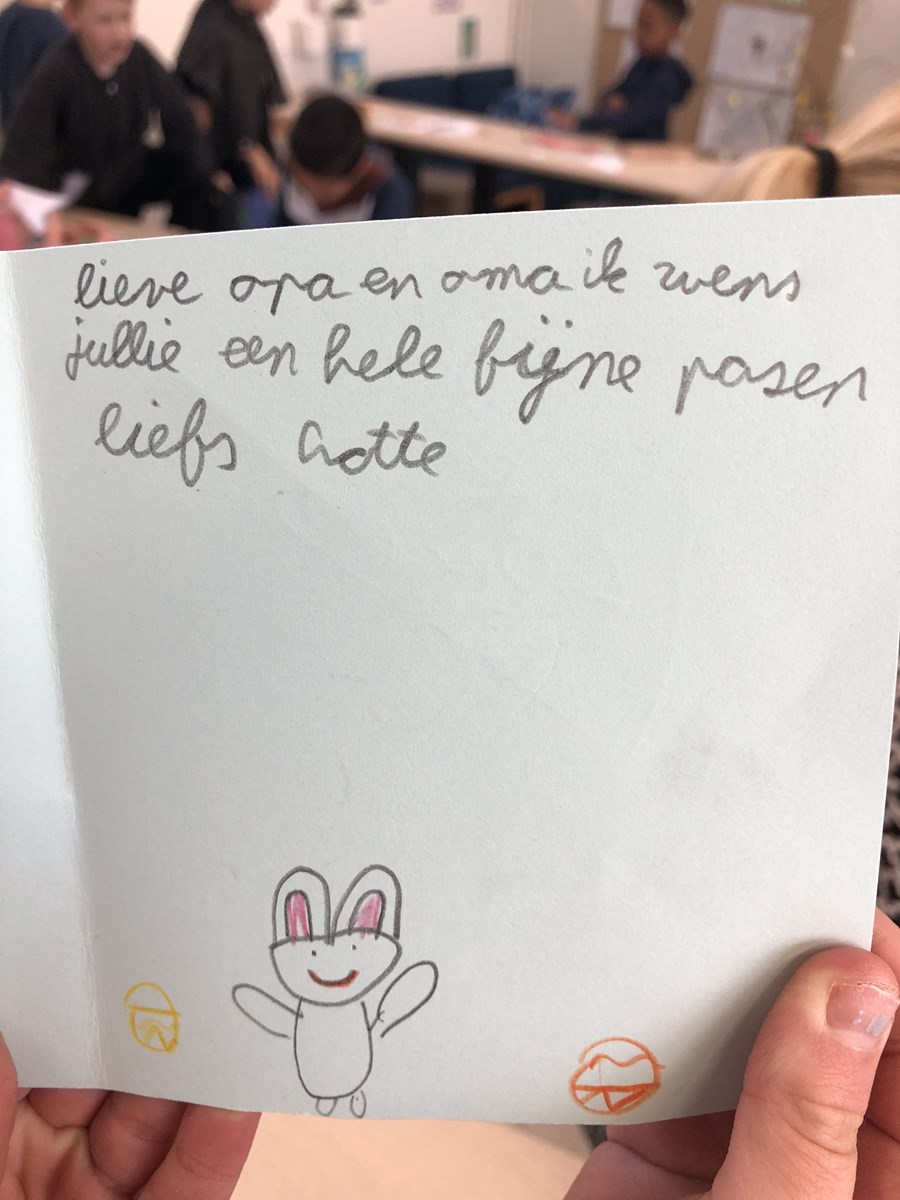 lieve opa en oma ik wens
jullie een hele fijne pasen
liefs Lotte